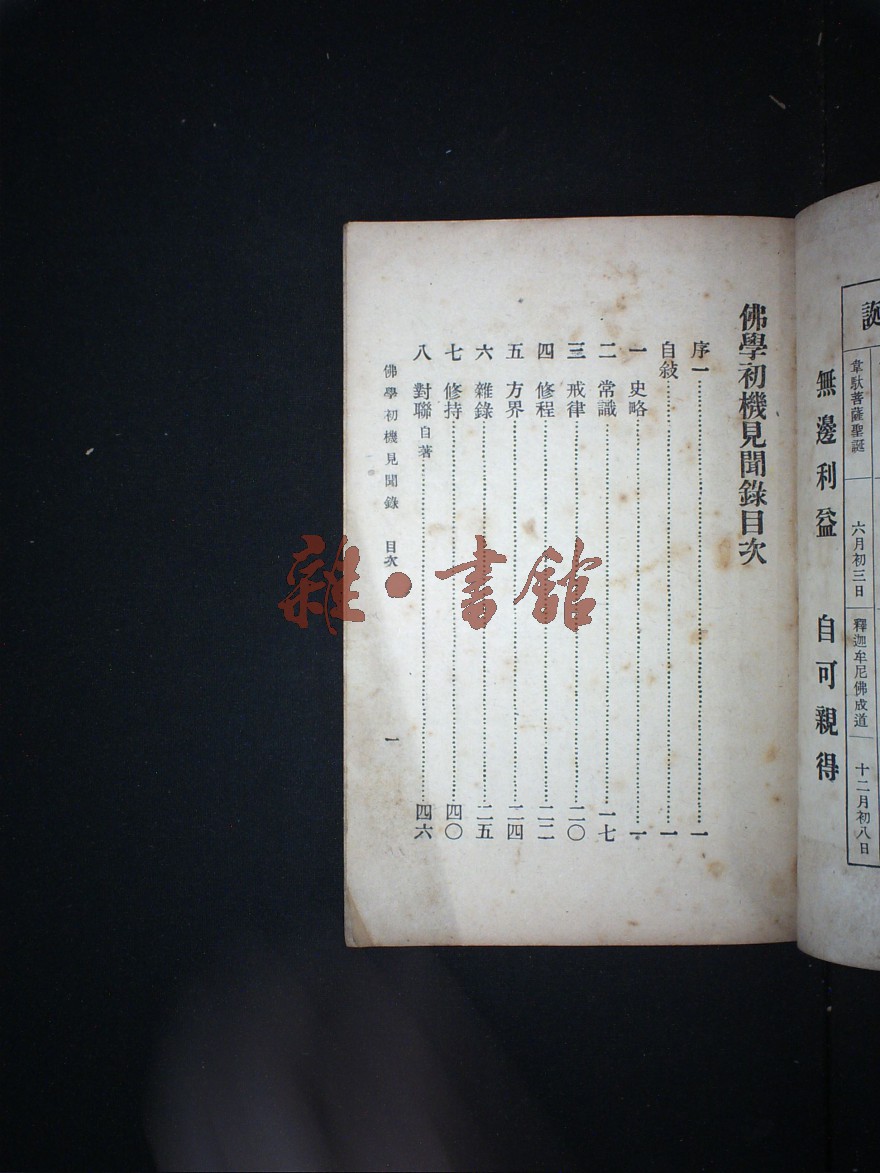 誕
韋馱菩薩聖誕
六月初三日
釋迦牟尼佛成道
十二月初八日
無邊利益 自可親得
佛學初機見聞錄目次
序一……一
自敍……一
一 史略……一
二 常識……一七
三 戒律……二〇
四 修程……二二
五 方界……二四
六 雜錄……二五
七 修持……四〇
八 對聯自著……四六
佛學初機見聞錄 目次 一
雜·書館